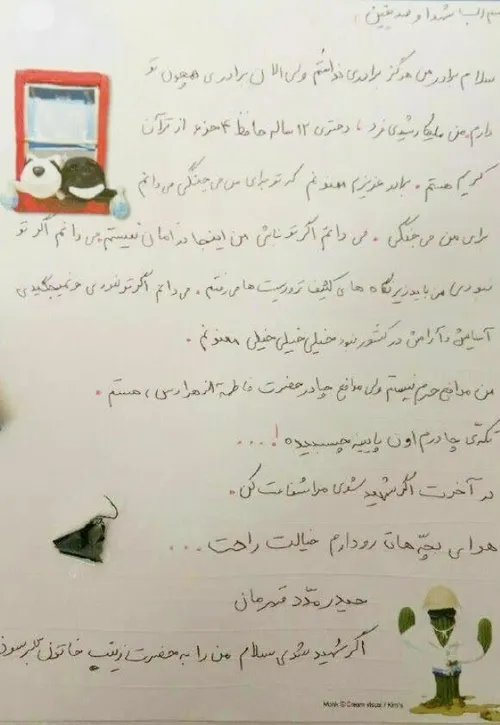 بسم الب شهدا و صدیقین
سلام برادر من هرگز برادری نداشتم ولی الان برادری همچون تو
دارم. من ملیکا رشیدی فرد، دختری ۱۲ ساله حافظ ۴ جزء از قرآن
کریم هستم. برادر عزیزم ممنونم که تو برای من می جنگی می دانم
برای من می جنگی. می دانم اگر تو نباشی من اینجا در امان نیستم، می دانم اگر تو
نبودی من باید زیر نگاه های کثیف تروریست ها می رفتم. می دانم اگر تو نبودی و نمیجنگیدی
آسایش و آرامش در کشور نبود خیلی خیلی خیلی ممنونم.
من مدافع حرم نیستم ولی مدافع چادر حضرت فاطمة الزهرا (س) هستم.
تکه‌ی چادرم اون پایینه چسبیده!...
در آخرت اگر شهید شدی مرا شفاعت کن.
هوای بچه هات رو دارم خیالت راحت...
حیدر مدد قهرمان
اگر شهید شدی سلام من را به حضرت زینب خاتون برسون
Monk © Cream visual / Kim's